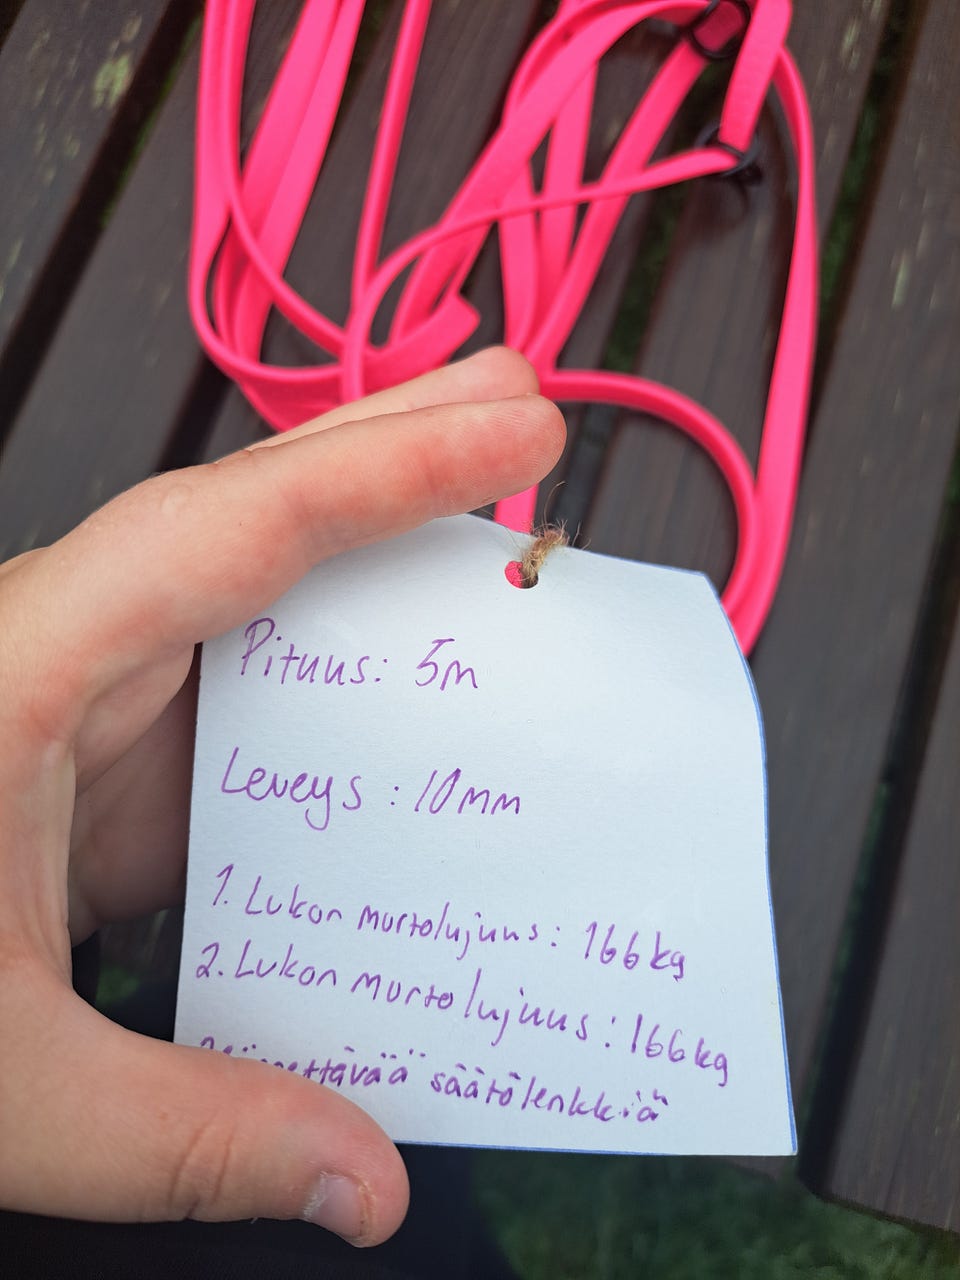 Pituus: 5m
Leveys: 10mm
1. Lukon murtolujuus: 166kg
2. Lukon murtolujuus: 166kg
säätölenkkiä